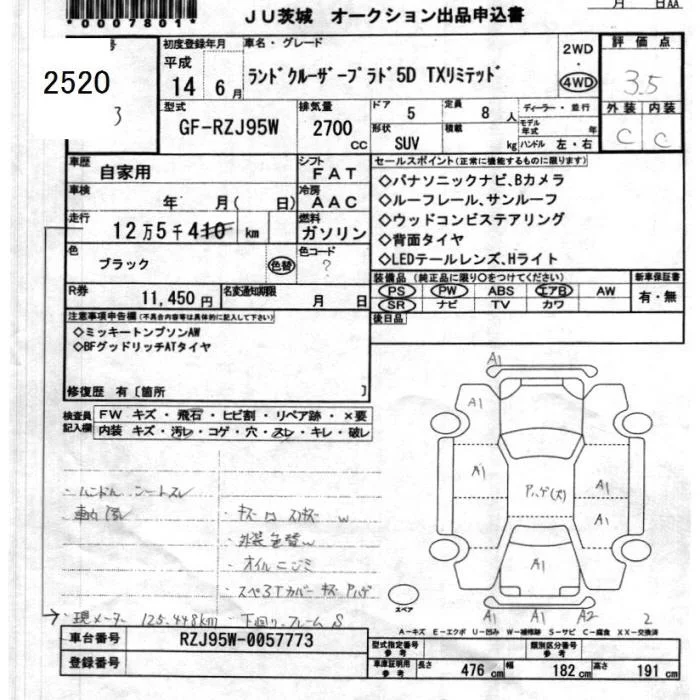 月 日AA
*00007801*
JU茨城 オークション出品申込書
2520
3
初度登録年月
平成
14年6月
車名・グレード
ランドクルーザープラド5D TXリミテッド
2WD
・
4WD
評価点
3.5
外装 内装
C C
型式
GF-RZJ95W
排気量
2700 CC
ドア
5
定員
8人
形状
SUV
積載
kg
ディーラー・並行
モデル年式 年
ハンドル 左・右
車歴
自家用
シフト
FAT
車検
年 月( 日)
冷房
AAC
走行
12万5千410km
燃料
ガソリン
色
ブラック
色替
色コード
?
R券
11,450円
名変通知期限
月 日
セールスポイント(正常に機能するものに限ります)
◇パナソニックナビ、Bカメラ
◇ルーフレール、サンルーフ
◇ウッドコンビステアリング
◇背面タイヤ
◇LEDテールレンズ、Hライト
装備品 (純正品に限り○をつけてください)
PS PW ABS エアB AW
SR ナビ TV カワ
新車保証書
有・無
後日品
注意事項申告欄(不具合内容等は具体的に記入して下さい)
◇ミッキートンプソンAW
◇BFグッドリッチATタイヤ
修復歴 有〔箇所 〕
検査員記入欄
FW キズ・飛石・ヒビ割・リペア跡・×要
内装 キズ・汚レ・コゲ・穴・スレ・キレ・破レ
・ハンドル シートスレ
車内汚レ
・キズ凹 w
・外装色替w
・オイルニジミ
・スペ3Tカバー キズ ハゲ
・現メーター 125.448km
・下回り、フレームS
A1
A1
A1
ハゲ(大)
A1
A1
A1
A1 A1 A2
2
スペア
A-キズ E-エクボ U-凹み W-補修跡 S-サビ C-腐食 XX-交換済
車台番号
RZJ95W-0057773
登録番号
型式指定番号 参考
類別区分番号 参考
車庫証明用 参考
長さ 476cm 幅 182cm 高さ 191cm